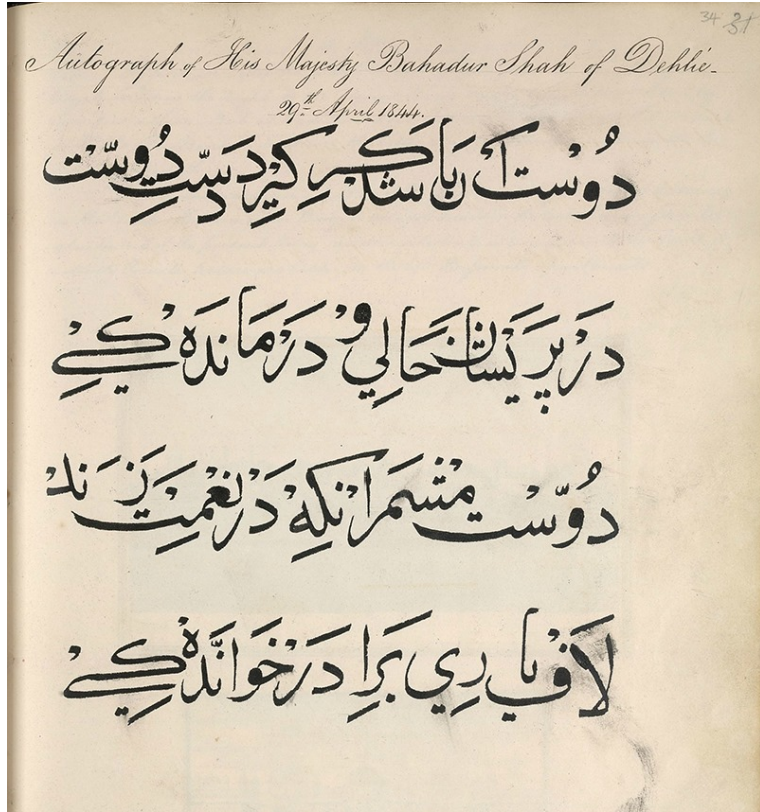 34 31
Autograph of His Majesty Bahadur Shah of Dehlie -
29th April 1844.
دوست آن باشد كه كيرد دست دوست
در پريشان حالي و درمانده كي
دوست مشمر انكه در نعمت زند
لاف ياري برادر خوانده كي